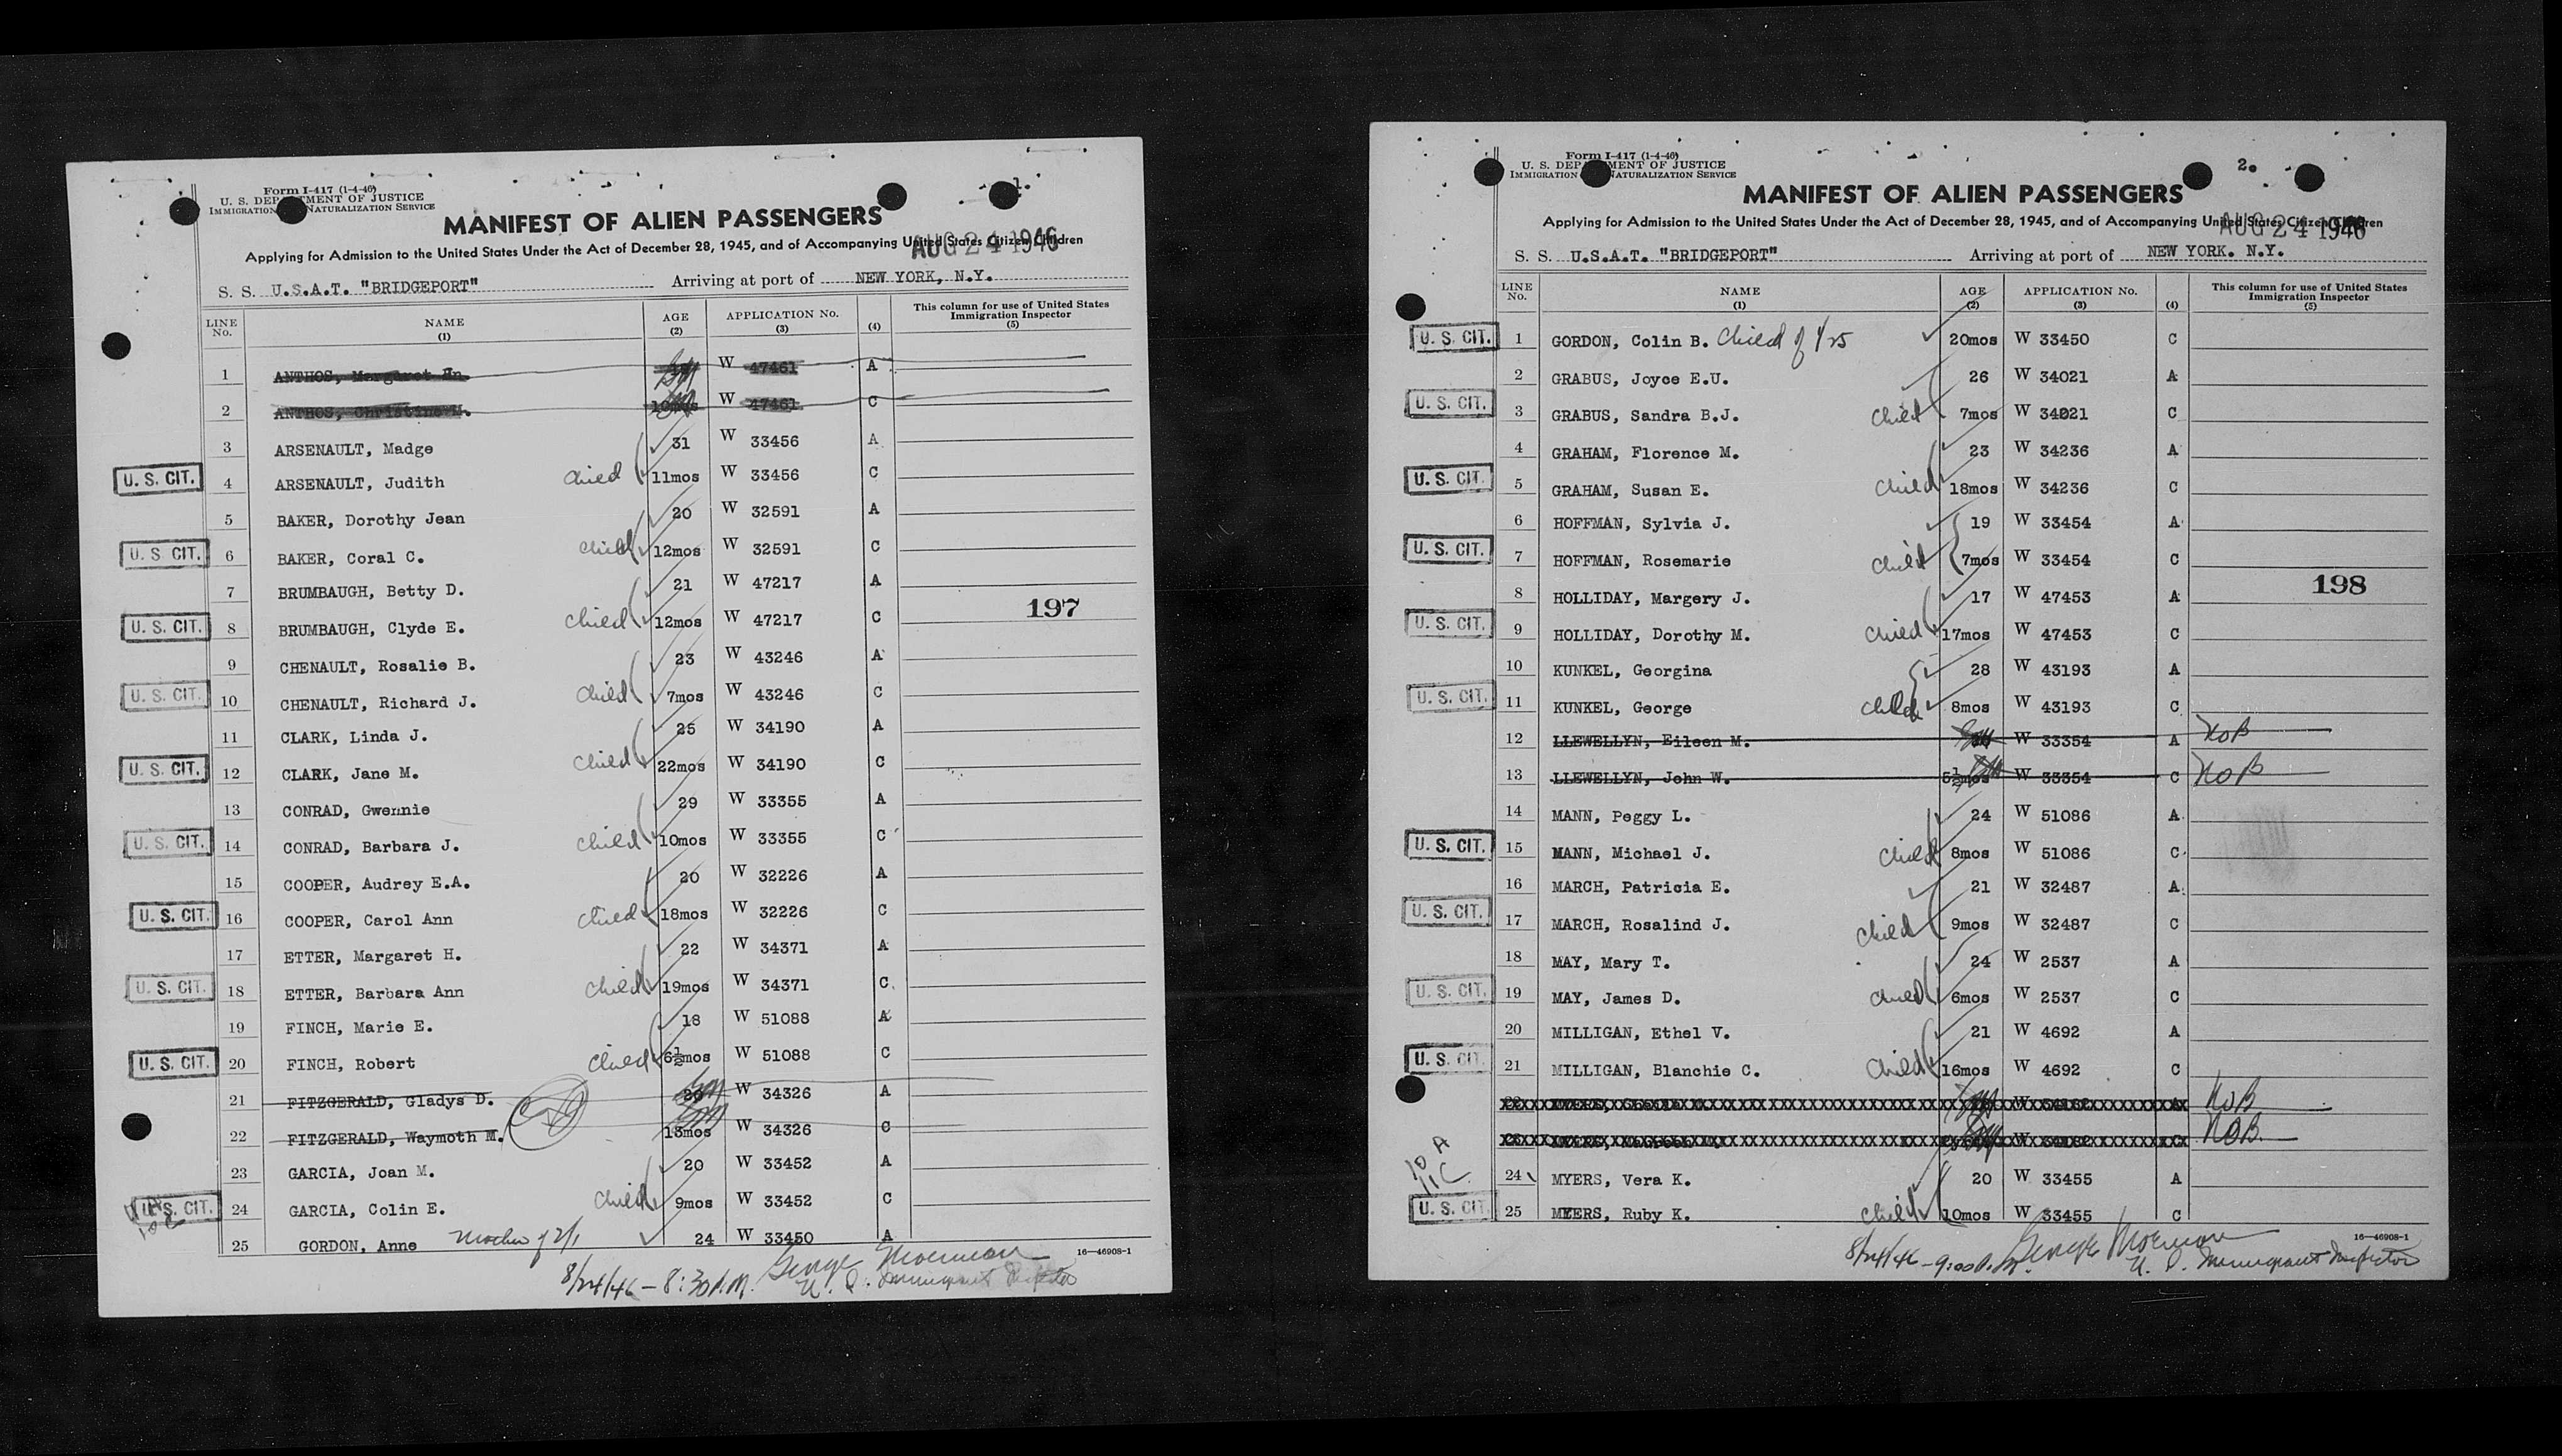 Form I-417 (1-4-46)
U. S. DEPARTMENT OF JUSTICE
IMMIGRATION NATURALIZATION SERVICE
1.
MANIFEST OF ALIEN PASSENGERS
Applying for Admission to the United States Under the Act of December 28, 1945, and of Accompanying United States Citizen Children
AUG 24 1946
S. S. U.S.A.T. "BRIDGEPORT" Arriving at port of NEW YORK, N.Y.
LINE No. NAME (1) AGE (2) APPLICATION No. (3) (4) This column for use of United States Immigration Inspector (5)
1 ANTHOS, Margaret W 47461 A
2 ANTHOS, Christine M. 10mos W 47461 C
3 ARSENAULT, Madge 31 W 33456 A
U. S. CIT. 4 ARSENAULT, Judith child 11mos W 33456 C
5 BAKER, Dorothy Jean 20 W 32591 A
U. S. CIT. 6 BAKER, Coral C. child 12mos W 32591 C
7 BRUMBAUGH, Betty D. 21 W 47217 A
U. S. CIT. 8 BRUMBAUGH, Clyde E. child 12mos W 47217 C 197
9 CHENAULT, Rosalie B. 23 W 43246 A
U. S. CIT. 10 CHENAULT, Richard J. child 7mos W 43246 C
11 CLARK, Linda J. 25 W 34190 A
U. S. CIT. 12 CLARK, Jane M. child 22mos W 34190 C
13 CONRAD, Gwennie 29 W 33355 A
U. S. CIT. 14 CONRAD, Barbara J. child 10mos W 33355 C
15 COOPER, Audrey E.A. 20 W 32226 A
U. S. CIT. 16 COOPER, Carol Ann child 18mos W 32226 C
17 ETTER, Margaret H. 22 W 34371 A
U. S. CIT. 18 ETTER, Barbara Ann child 19mos W 34371 C
19 FINCH, Marie E. 18 W 51088 A
U. S. CIT. 20 FINCH, Robert child 6½mos W 51088 C
21 FITZGERALD, Gladys D. W 34326 A
22 FITZGERALD, Waymoth M. 13mos W 34326 C
23 GARCIA, Joan M. 20 W 33452 A
U. S. CIT. 24 GARCIA, Colin E. child 9mos W 33452 C
25 GORDON, Anne Mother of 2/1 24 W 33450 A
16—46908-1
8/24/46 - 8:30 P.M. George Moerman
U. S. Immigrant Inspector
Form I-417 (1-4-46)
U. S. DEPARTMENT OF JUSTICE
IMMIGRATION NATURALIZATION SERVICE
2.
MANIFEST OF ALIEN PASSENGERS
Applying for Admission to the United States Under the Act of December 28, 1945, and of Accompanying United States Citizen Children
AUG 24 1946
S. S. U.S.A.T. "BRIDGEPORT" Arriving at port of NEW YORK. N.Y.
LINE No. NAME (1) AGE (2) APPLICATION No. (3) (4) This column for use of United States Immigration Inspector (5)
U. S. CIT. 1 GORDON, Colin B. Child of 1/25 20mos W 33450 C
2 GRABUS, Joyce E.U. 26 W 34021 A
U. S. CIT. 3 GRABUS, Sandra B.J. child 7mos W 34021 C
4 GRAHAM, Florence M. 23 W 34236 A
U. S. CIT. 5 GRAHAM, Susan E. child 18mos W 34236 C
6 HOFFMAN, Sylvia J. 19 W 33454 A
U. S. CIT. 7 HOFFMAN, Rosemarie child 7mos W 33454 C
8 HOLLIDAY, Margery J. 17 W 47453 A 198
U. S. CIT. 9 HOLLIDAY, Dorothy M. child 17mos W 47453 C
10 KUNKEL, Georgina 28 W 43193 A
U. S. CIT. 11 KUNKEL, George child 8mos W 43193 C
12 LLEWELLYN, Eileen M. W 33354 A NOB
13 LLEWELLYN, John W. 5½mos W 33354 C NOB
14 MANN, Peggy L. 24 W 51086 A
U. S. CIT. 15 MANN, Michael J. child 8mos W 51086 C
16 MARCH, Patricia E. 21 W 32487 A
U. S. CIT. 17 MARCH, Rosalind J. child 9mos W 32487 C
18 MAY, Mary T. 24 W 2537 A
U. S. CIT. 19 MAY, James D. child 6mos W 2537 C
20 MILLIGAN, Ethel V. 21 W 4692 A
U. S. CIT. 21 MILLIGAN, Blanchie C. child 16mos W 4692 C
NOB
NOB
10 A
11 C
24 MYERS, Vera K. 20 W 33455 A
U. S. CIT. 25 MYERS, Ruby K. child 10mos W 33455 C
16—46908-1
8/24/46 - 9:00 P.M. George Moerman
U. S. Immigrant Inspector